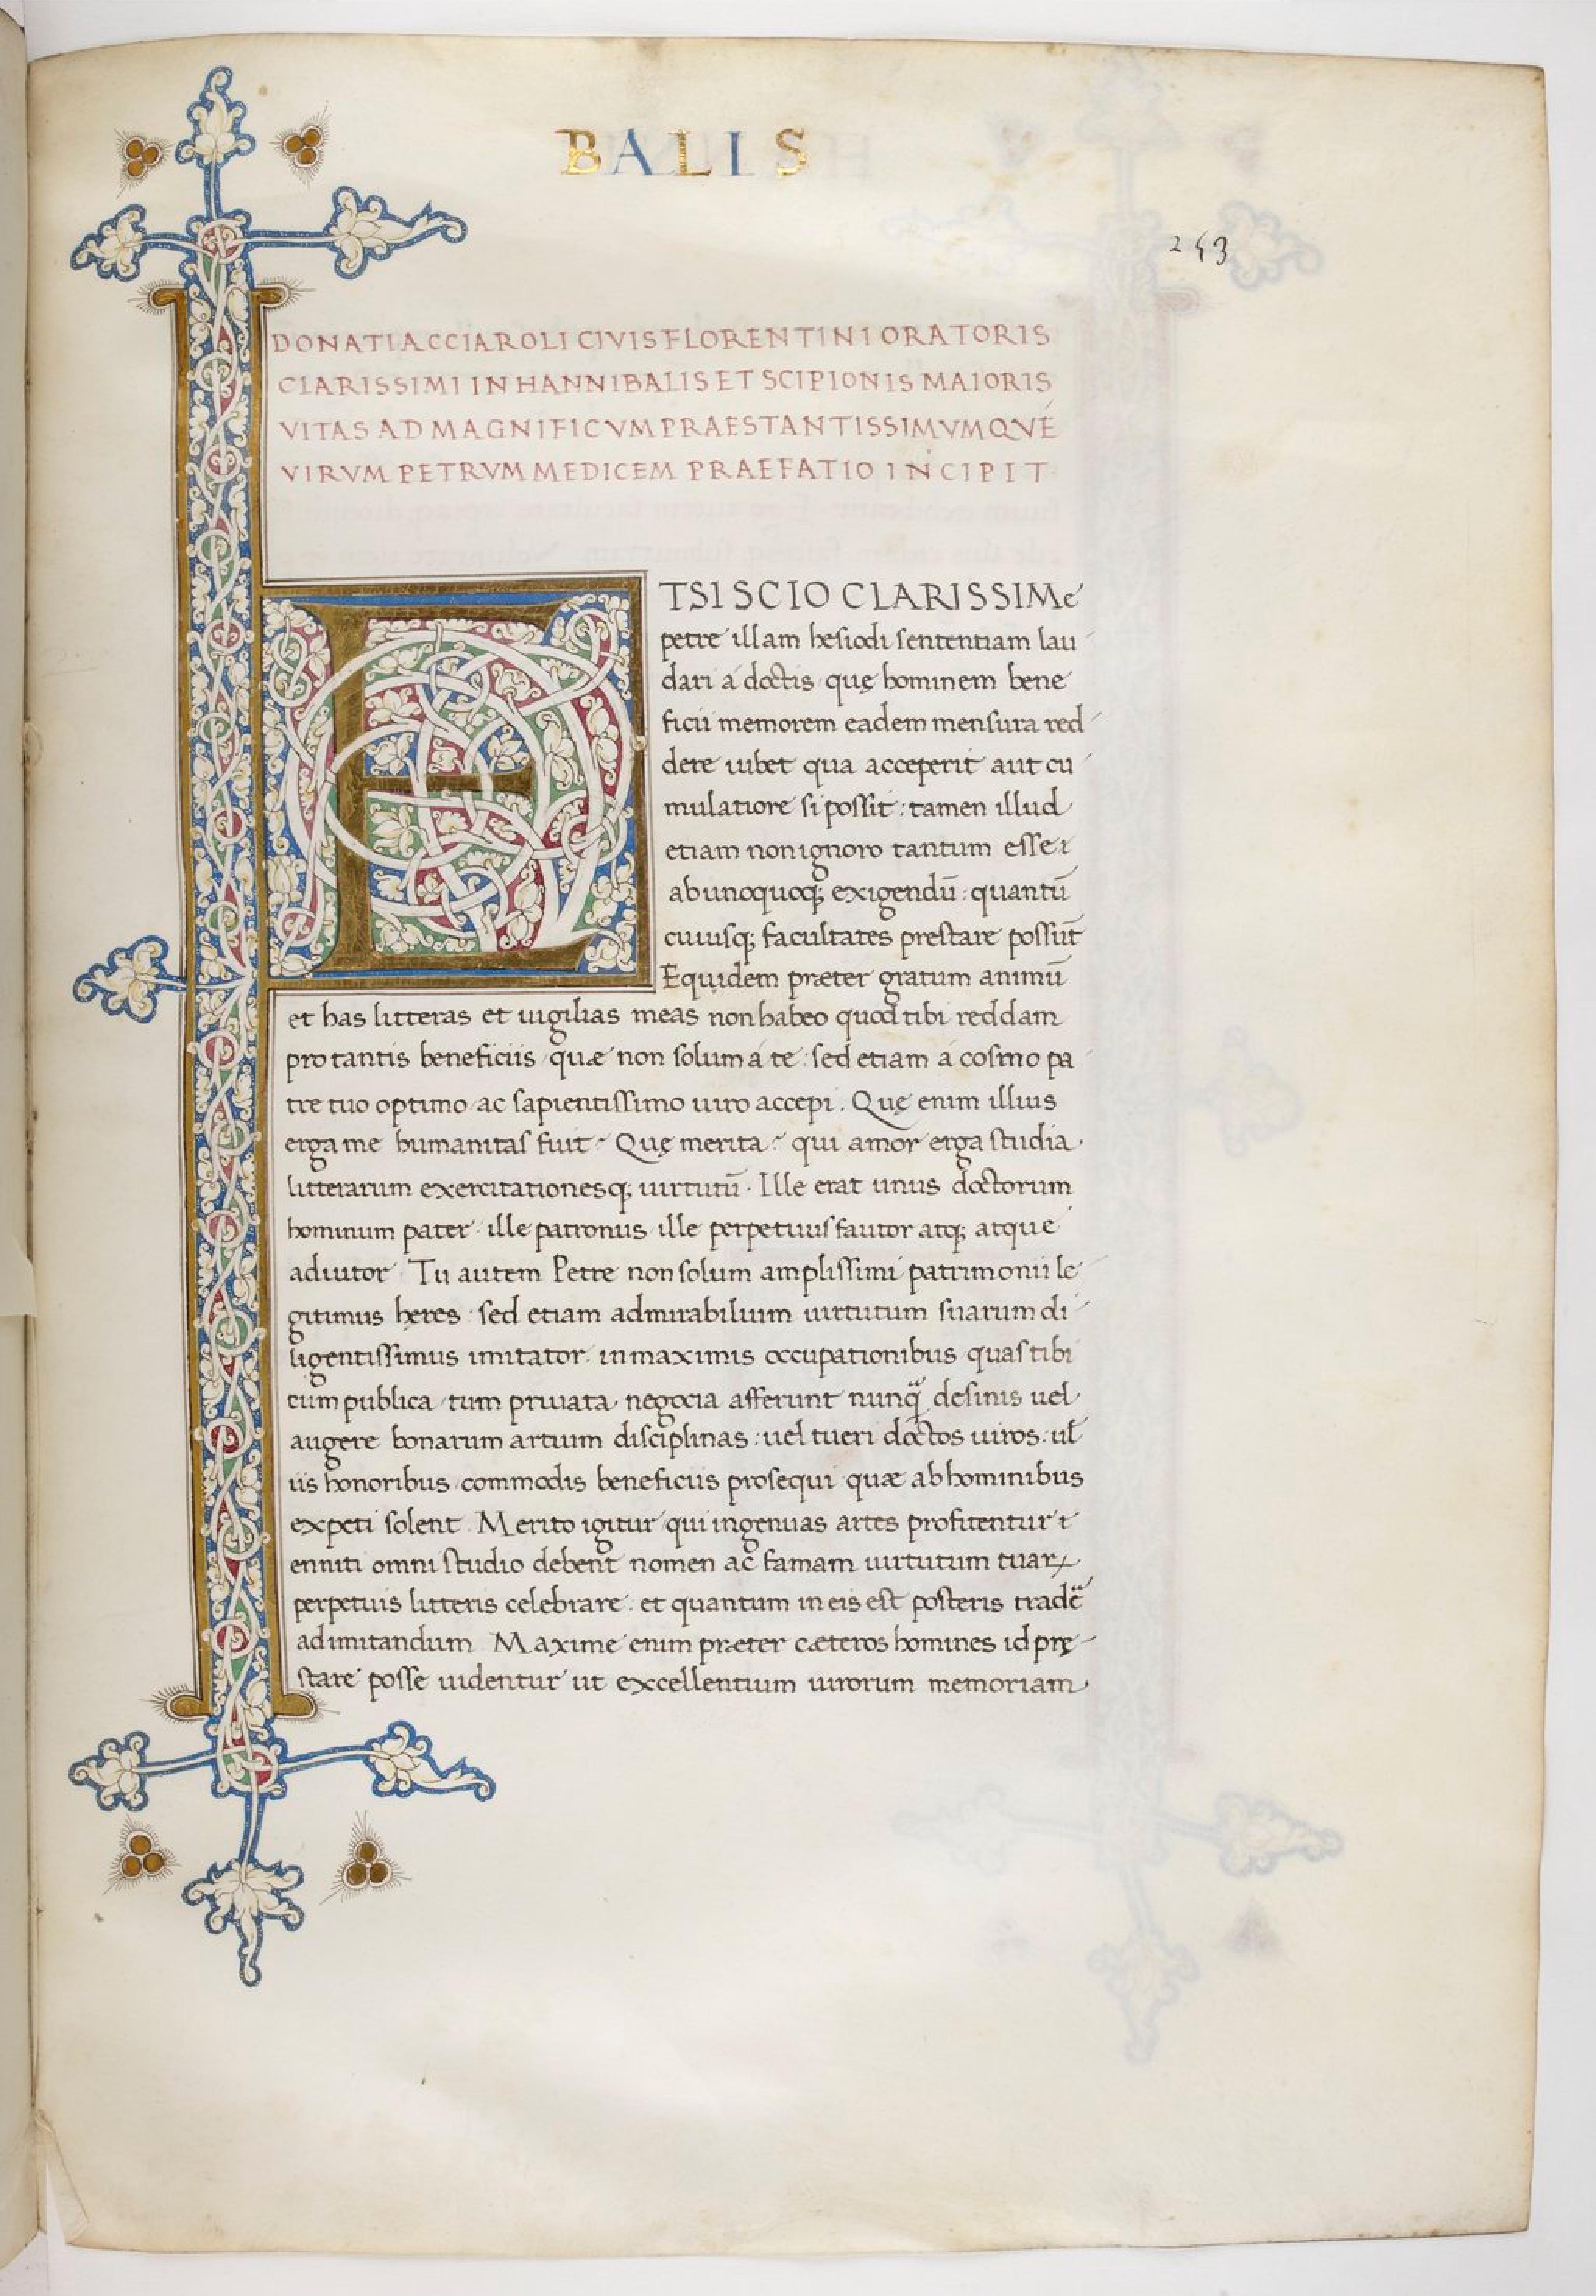 BALIS
253
DONATI ACCIAROLI CIVIS FLORENTINI ORATORIS
CLARISSIMI IN HANNIBALIS ET SCIPIONIS MAIORIS
VITAS AD MAGNIFICVM PRAESTANTISSIMVMQVÉ
VIRVM PETRVM MEDICEM PRAEFATIO INCIPIT
ETSI SCIO CLARISSIMe
petre illam hesiodi sententiam lau
dari á doctis quę hominem bene
ficii memorem eadem mensura red
dere iubet qua acceperit aut cu
mulatiore si possit: tamen illud
etiam non ignoro tantum esse
ab unoquoq; exigendū: quantū
cuiusq; facultates prestare possūt
Equidem præter gratum animū
et has litteras et uigilias meas non habeo quod tibi reddam
pro tantis beneficiis quæ non solum á te: sed etiam á cosmo pa
tre tuo optimo ac sapientissimo uiro accepi. Quę enim illius
erga me humanitas fuit? Quę merita? qui amor erga studia
litterarum exercitationesq; uirtutū. Ille erat unus doctorum
hominum pater ille patronus ille perpetuus fautor atq; atque
adiutor. Tu autem Petre non solum amplissimi patrimonii le
gitimus hęres sed etiam admirabilium uirtutum suarum di
ligentissimus imitator in maximis occupationibus quas tibi
tum publica tum priuata negocia afferunt nunq̃ desinis uel
augere bonarum artium disciplinas: uel tueri doctos uiros: ul̄
iis honoribus commodis beneficiis prosequi quæ ab hominibus
expeti solent. Merito igitur qui ingenuas artes profitentur
enniti omni studio debent nomen ac famam uirtutum tuaꝝ
perpetuis litteris celebrare: et quantum in eis est posteris tradē
ad imitandum. Maxime enim præter cæteros homines id prę
stare posse uidentur ut excellentium uirorum memoriam